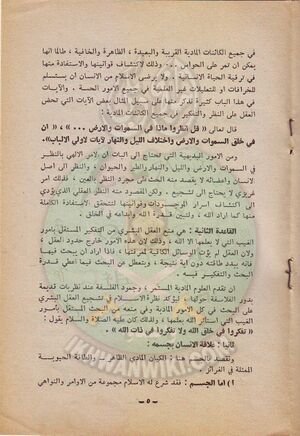 في جميع الكائنات المادية القريبة والبعيدة ، الظاهرة والخافية ، طالما انها
يمكن ان تمر على الحواس ... وذلك لاكتشاف قوانينها والاستفادة منها
في ترقية الحياة الانسانية . ولا يرضى الاسلام من الانسان ان يستسلم
للخرافات أو للتعليلات غير العلمية في الامور الحسية . والآيات
في هذا الباب كثيرة نذكر منها على سبيل المثال بعض الآيات التي تحض
العقل على النظر والتفكير في جميع الامور المادية .
قال تعالى « قل انظروا ماذا في السموات والارض ... » ، « ان
في خلق السموات والارض واختلاف الليل والنهار لآيات لاولي الالباب » .
ومن الامور البديهية التي تحتاج الى اثبات ان الامر الالهي بالنظر
في السموات والارض والليل والنهار والطير والحيوان ، والنظر الى اصل
الانسان وفصائله لا يقصد منه الحث على مجرد النظر بالعين ، فذلك امر
غريزي لا يحتاج الى تشجيع . ولكن المقصود منه النظر العقلي الذي يؤدي
الى اكتشاف اسرار الموجودات وقوانينها لتتحقق الاستفادة الكاملة
منها كما اراد الله ، ولتتبين قدرة الله وابداعه في الخلق .
القاعدة الثانية : هي منع العقل البشري من التفكير المستقل بامور
الغيب التي لا يعلمها الا الله . وذلك لان هذه الامور خارج حدود العقل ،
ولان العقل لم يؤت الوسائل الكافية لمعرفتها ، فاذا اراد ان يبحث فيها
فانه يبدد طاقته دون اية نتيجة ، ويتعطل عن البحث فيما اعطي قدرة
البحث والتفكير فيه .
ان تقدم العلوم المادية المستمر ، وجمود الفلسفة عند نظريات قديمة
يدور الفلاسفة حولها ، ليؤكد نظرة الاسلام في تشجيع العقل البشري
على البحث في كل الامور المادية وفي منعه من البحث المستقل بامور
الغيب التي استأثر الله بعلمها . وذلك كما كان عليه الصلاة والسلام يقول :
« تفكروا في خلق الله ولا تفكروا في ذات الله » .
ثانيا : علاقة الانسان بجسمه :
ونقصد بالجسم هنا : الكيان المادي الظاهر والطاقة الحيوية
الممثلة في الغرائز .
١) اما الجسم : فقد شرع له الاسلام مجموعة من الاوامر والنواهي
— ٥ —
IKHWANWIKI.COM